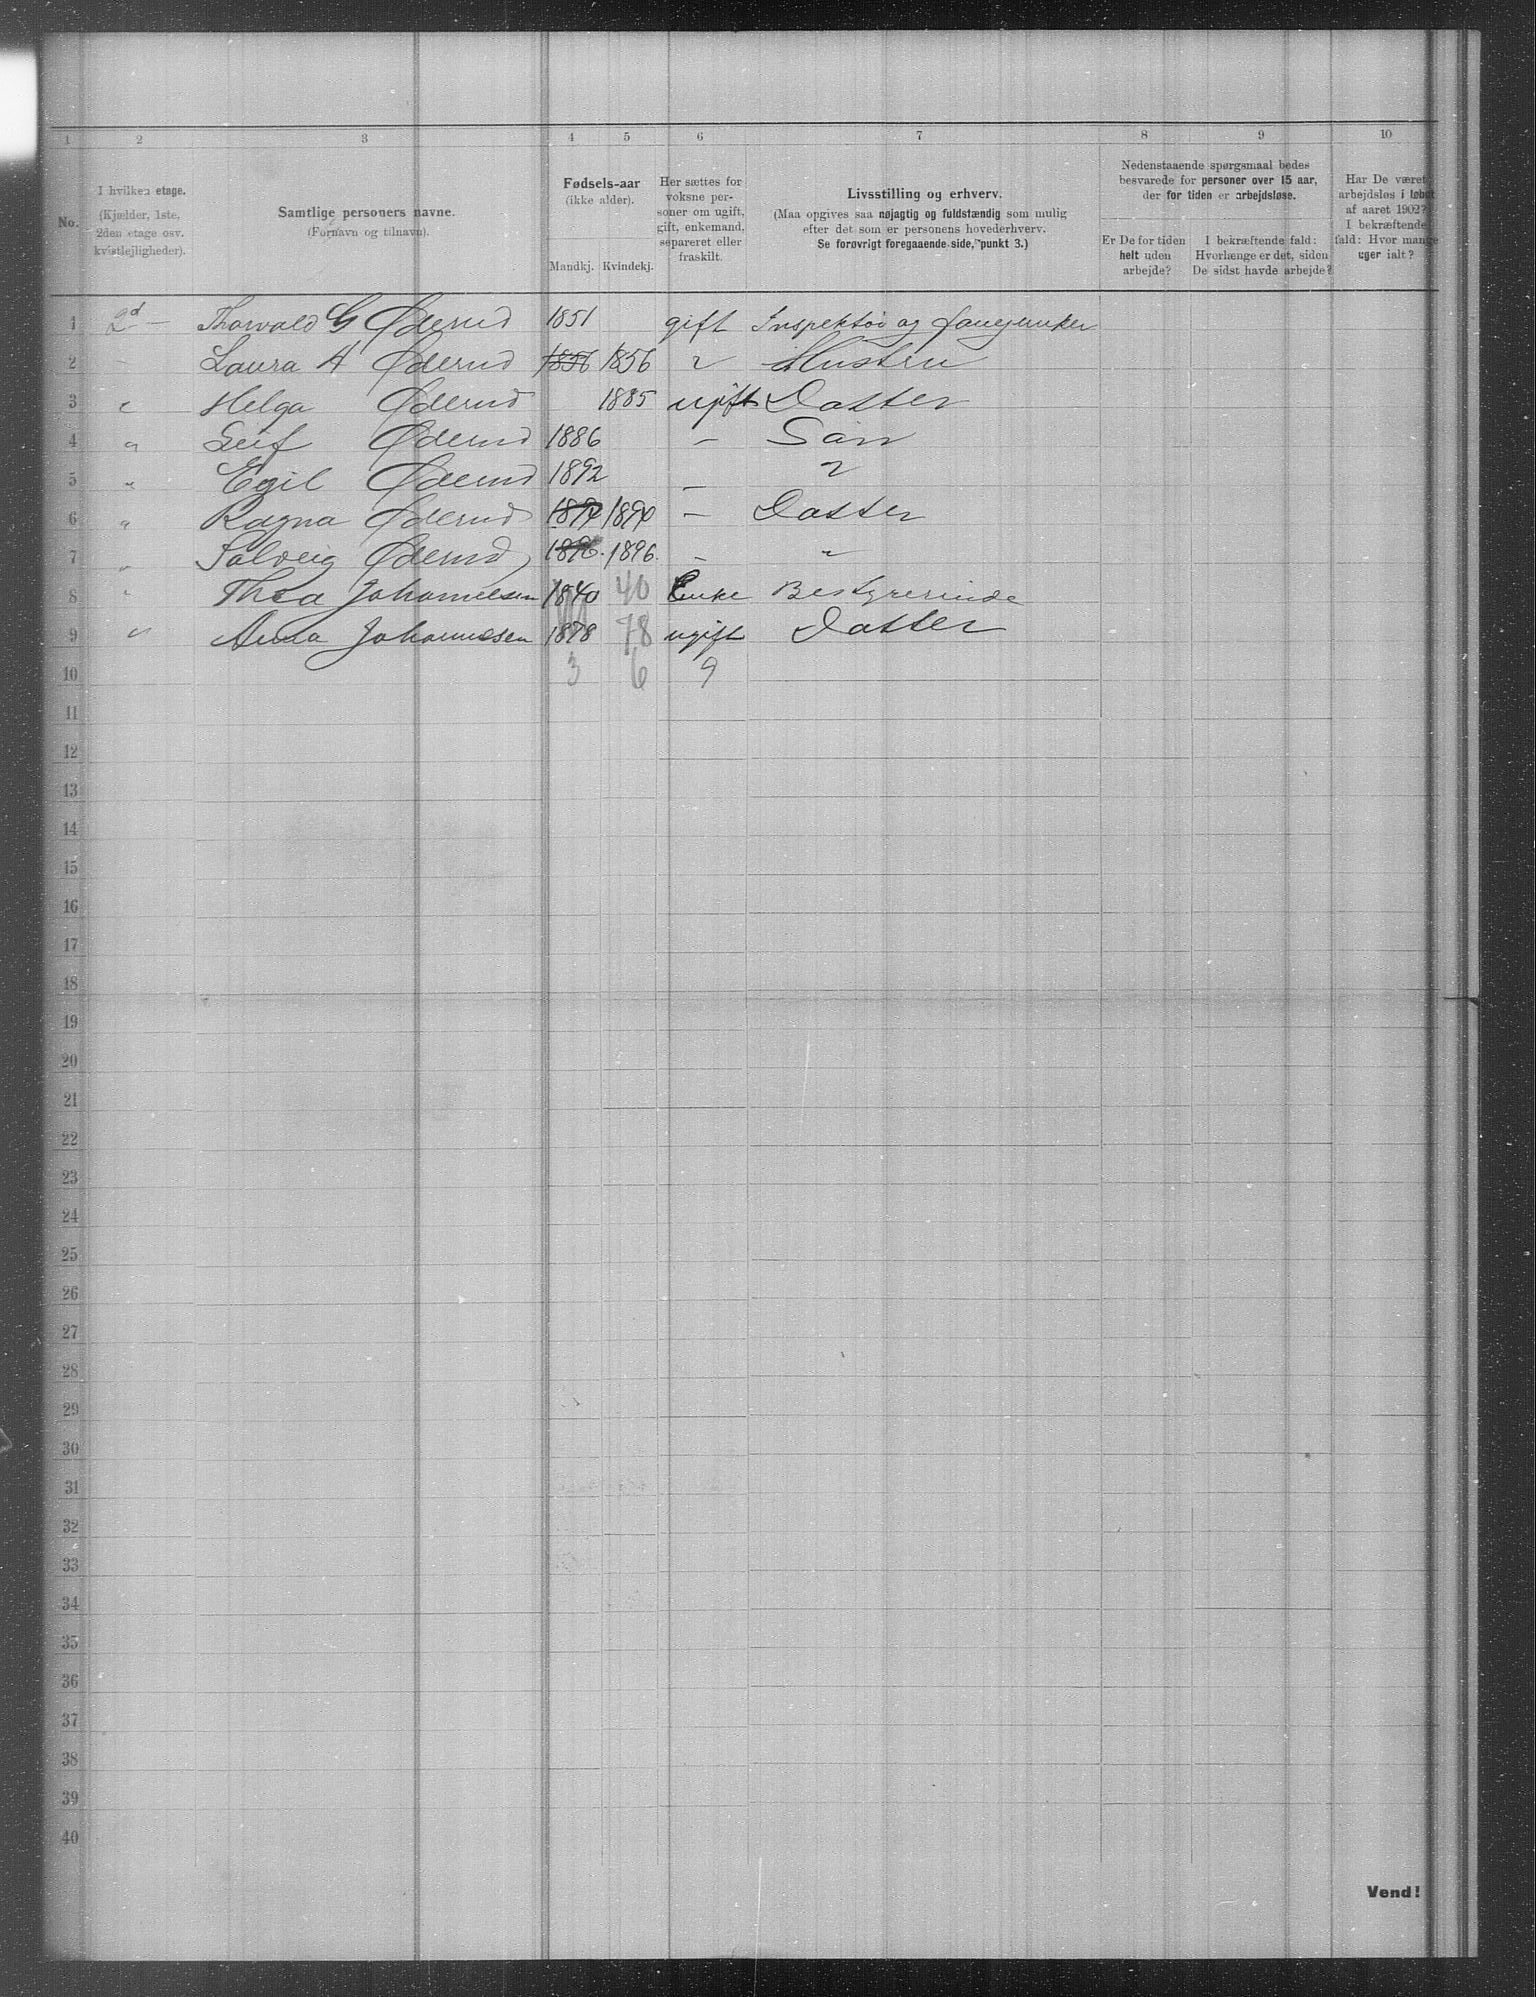 1 2 3 4 5 6 7 8 9 10
No.
I hvilken etage.
(Kjælder, 1ste,
2den etage osv.
kvistlejligheder).
Samtlige personers navne.
(Fornavn og tilnavn).
Fødsels-aar
(ikke alder).
Mandkj. Kvindekj.
Her sættes for
voksne per-
soner om ugift,
gift, enkemand,
separeret eller
fraskilt.
Livsstilling og erhverv.
(Maa opgives saa nøjagtig og fuldstændig som mulig
efter det som er personens hovederhverv.
Se forøvrigt foregaaende side, punkt 3.)
Nedenstaaende spørgsmaal bedes
besvarede for personer over 15 aar,
der for tiden er arbejdsløse.
Er De for tiden
helt uden
arbejde?
I bekræftende fald:
Hvorlænge er det, siden
De sidst havde arbejde?
Har De været
arbejdsløs i løbet
af aaret 1902?
I bekræftende
fald: Hvor mange
uger ialt?
1 2d — Thorvald G Øderud 1851 gift Inspektör og
2 Laura A Øderud 1856 1856 " Hustru
3 " Helga Øderud 1885 ugift Datter
4 " Leif Øderud 1886 — Sön
5 " Egil Øderud 1892 — "
6 " Ragna Øderud 1890 — Datter
7 " Solveig Øderud 1896. 1896. — "
8 " Thea Johannesen 1840 40 Enke Bestyrerinde
9 " Anna Johannesen 1878 78 ugift Datter
10 3 6 9
11
12
13
14
15
16
17
18
19
20
21
22
23
24
25
26
27
28
29
30
31
32
33
34
35
36
37
38
39
40
Vend!